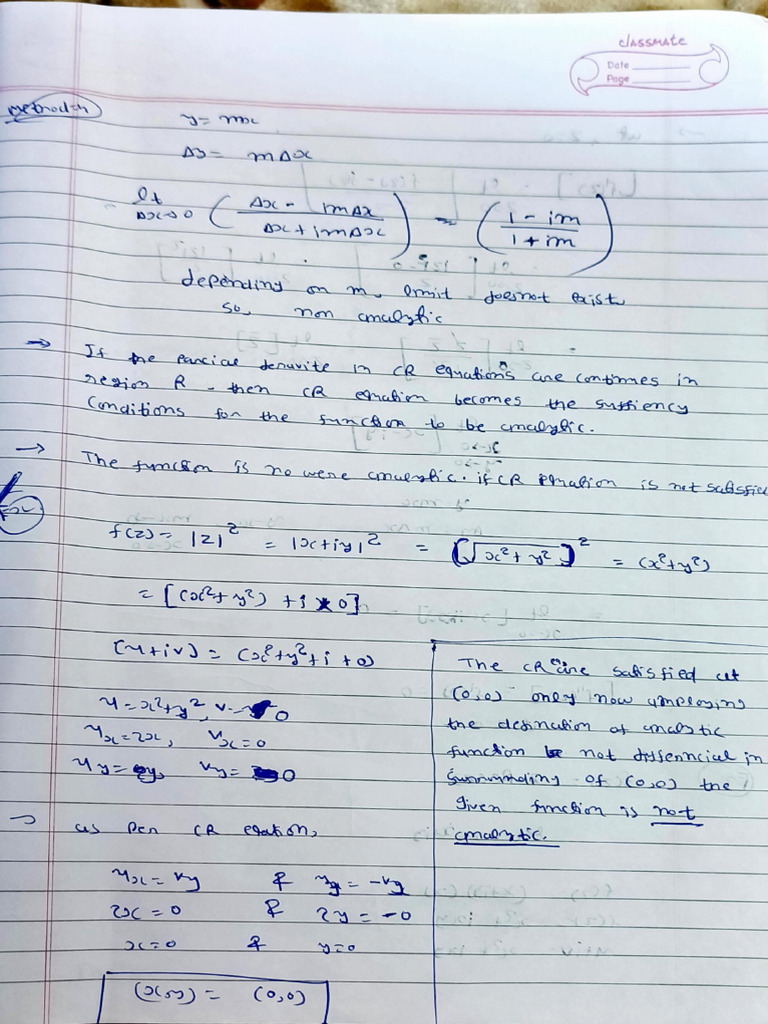 classmate
Date
Page
y = mx
Δy = mΔx
lt Δx→0 ( Δx - imΔx / Δx + imΔx ) = ( 1 - im / 1 + im )
depending on m, limit doesnot exist
so, non analytic
→ If the parcial deravite in CR equations are continues in
region R - then CR equation becomes the suffiency
Conditions for the function to be analytic.
→ The function is no were analytic. if CR equation is not satisfied
f(z) = |z|² = |x+iy|² = [√x²+y²]² = (x²+y²)
= [(x²+y²) + i × 0]
(u+iv) = (x²+y²+i+0)
u = x²+y², v = 0
u_x = 2x, v_x = 0
u_y = 2y, v_y = 0
→ as per CR eqation,
u_x = v_y & u_y = -v_y
2x = 0 & 2y = -0
x = 0 & y = 0
(x,y) = (0,0)
The CR are satisfied at
(0,0) only now
the defination of analytic
function not in
surrounding of (0,0) the
given function is not
analytic.